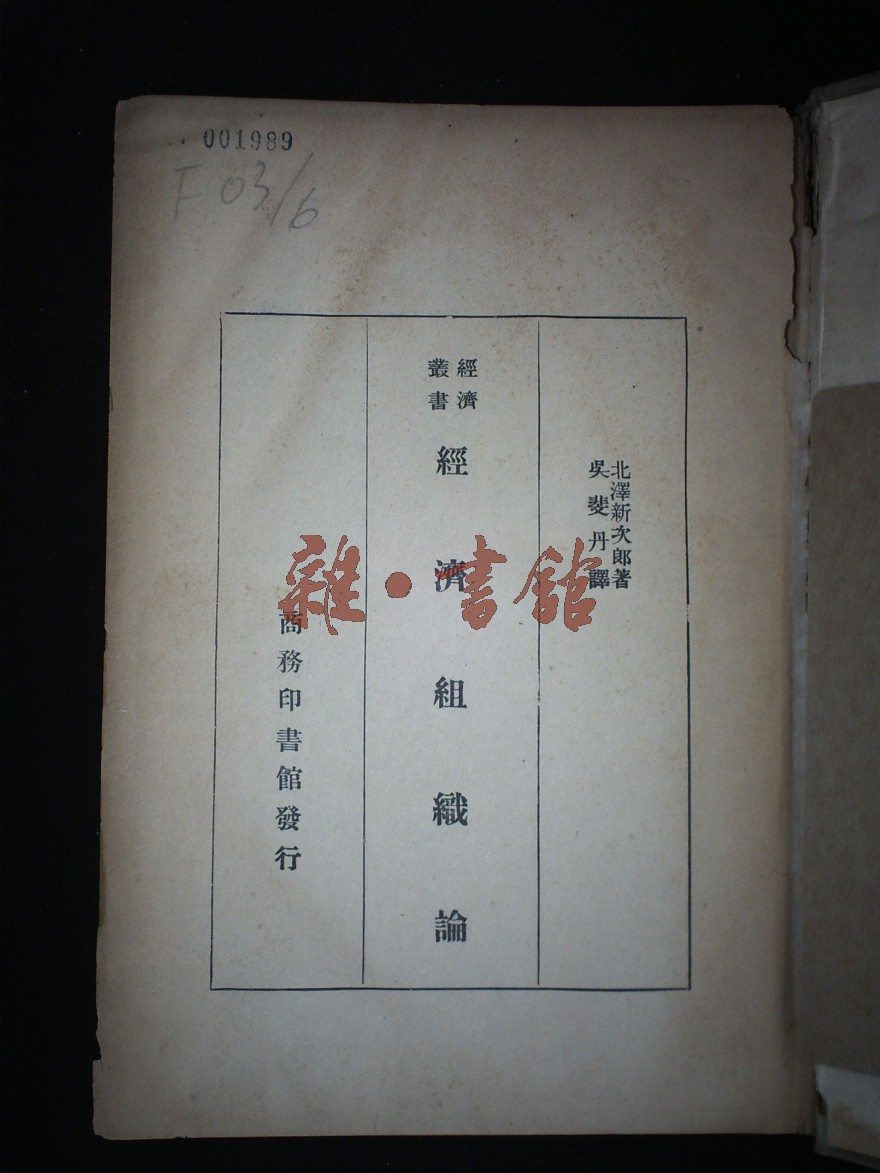 001989
F 03/6
北澤新次郎著
吳斐丹譯
經濟
叢書
經濟組織論
商務印書館發行
雜·書館